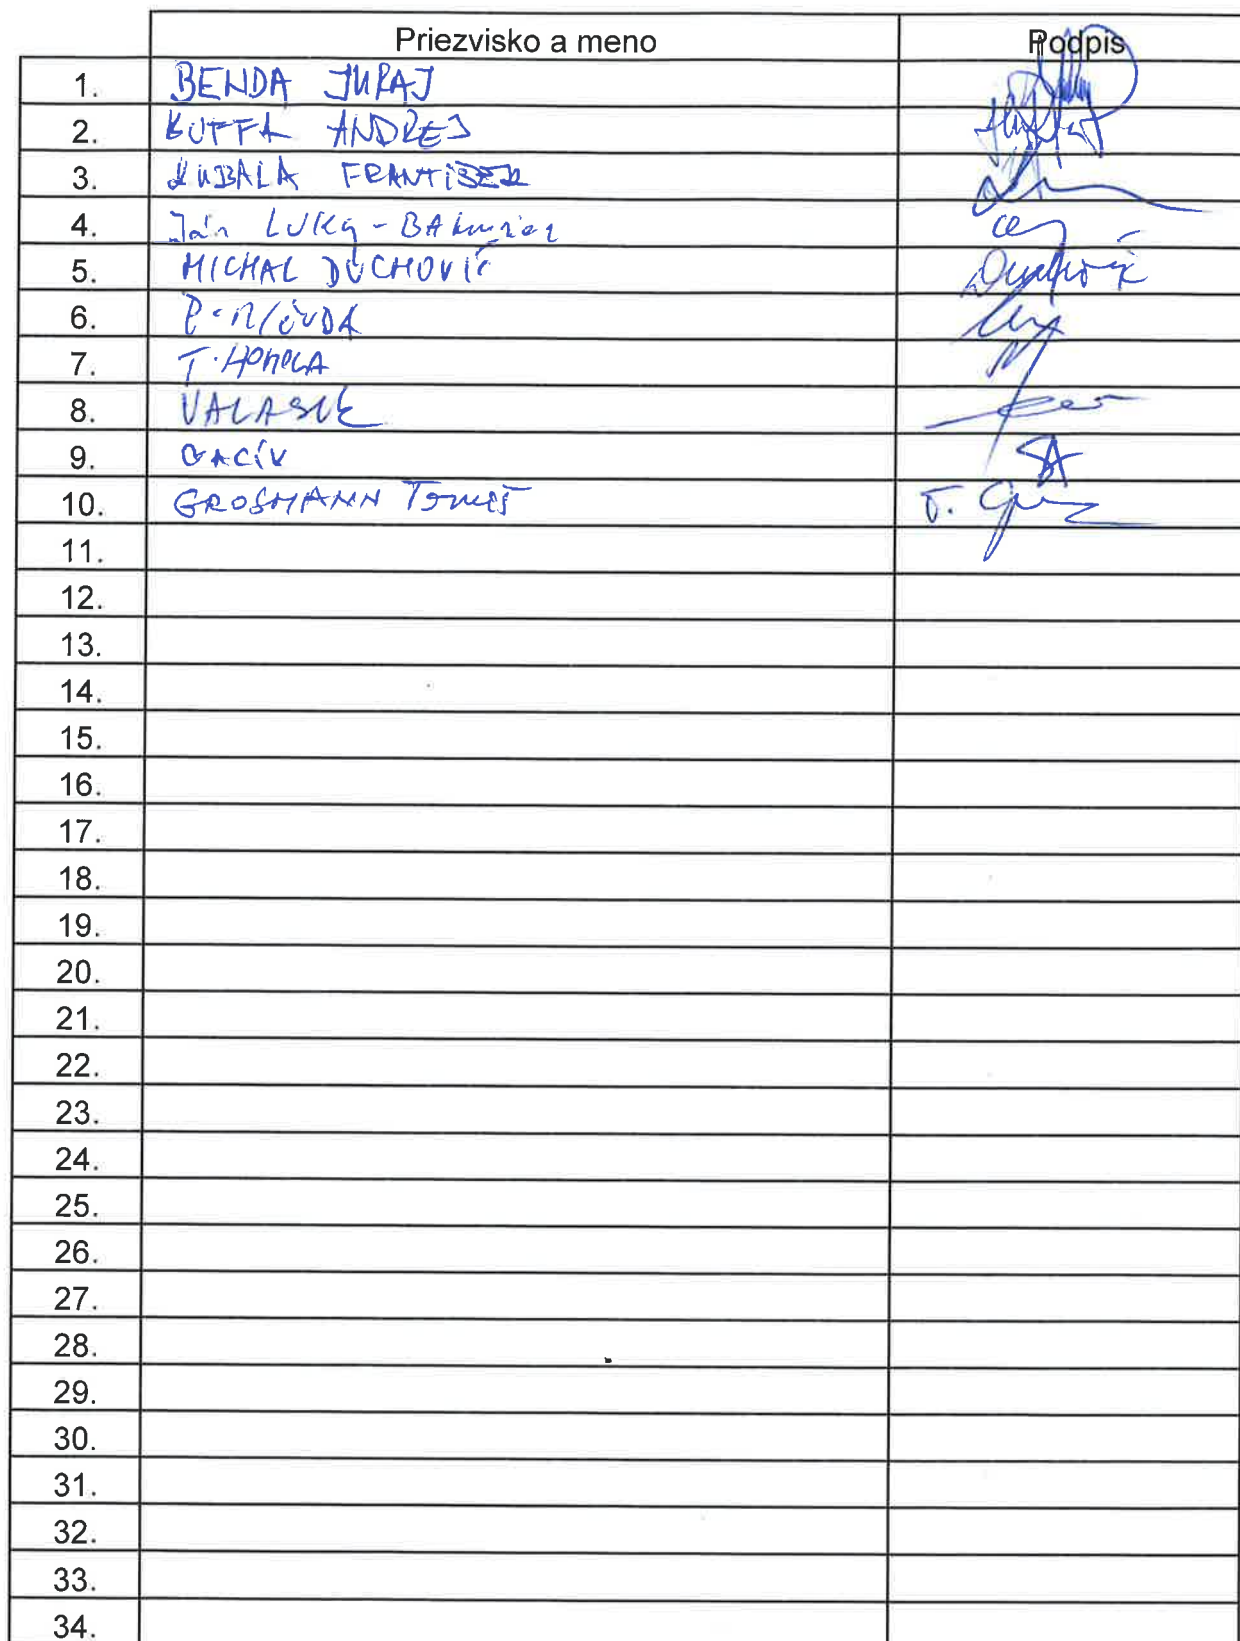 Priezvisko a meno Podpis
1. BENDA JURAJ
2. KUFFA ANDREJ
3. KUBALA FRANTIŠEK
4. Ján LUKA -
5. MICHAL DUCHOVIČ
6.
7. T. HOMOLA
8. VALASEK
9. GACÍK
10. GROSMANN Tomáš T.
11.
12.
13.
14.
15.
16.
17.
18.
19.
20.
21.
22.
23.
24.
25.
26.
27.
28.
29.
30.
31.
32.
33.
34.